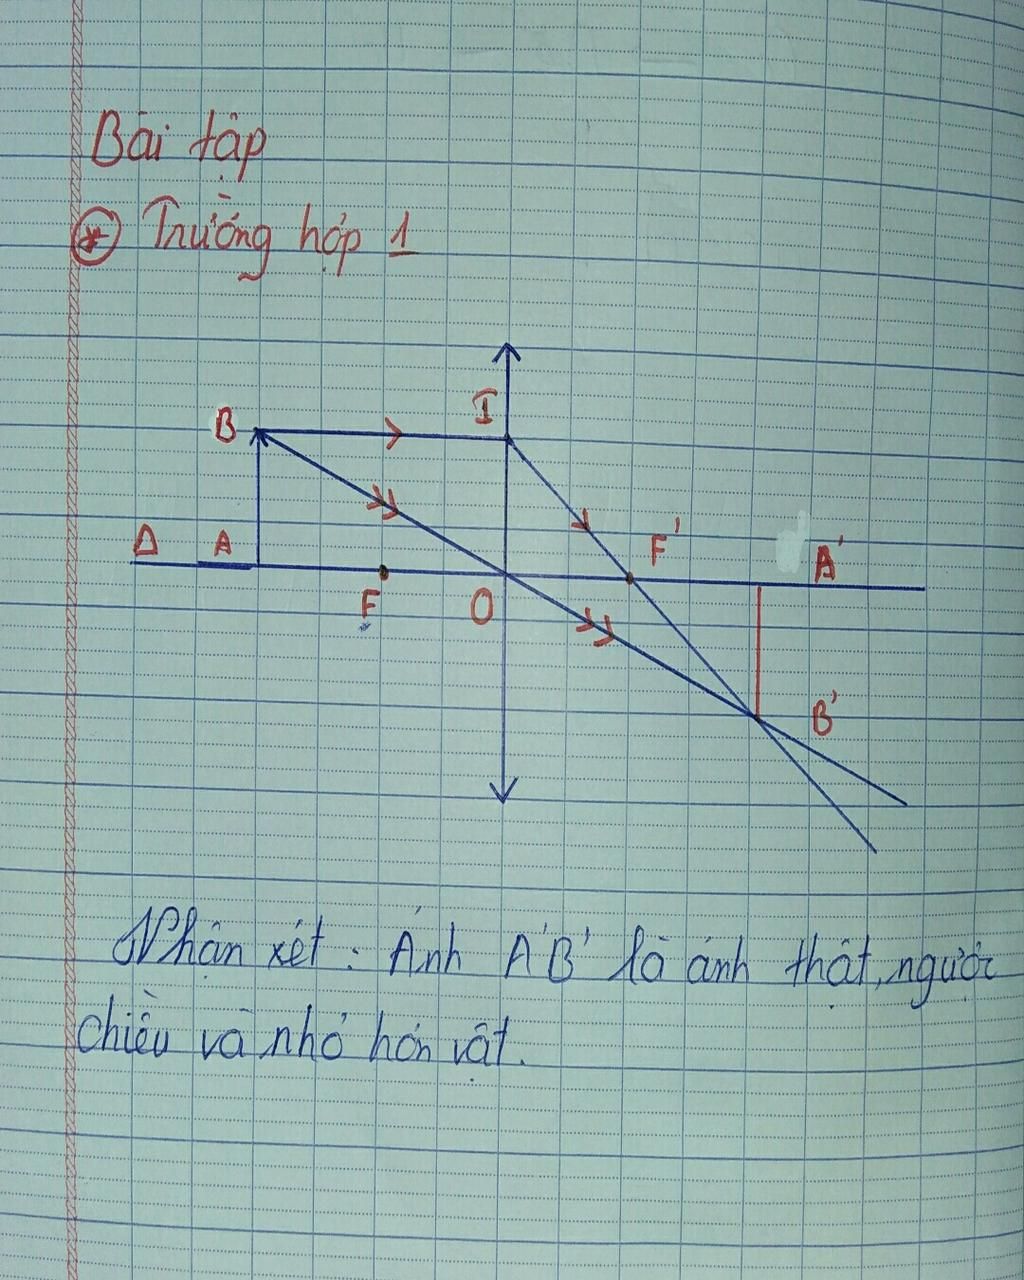 Bài tập
* Trường hợp 1
I
B
Δ A F' A'
F O
B'
Nhận xét : Ảnh A'B' là ảnh thật, ngược
chiều và nhỏ hơn vật.